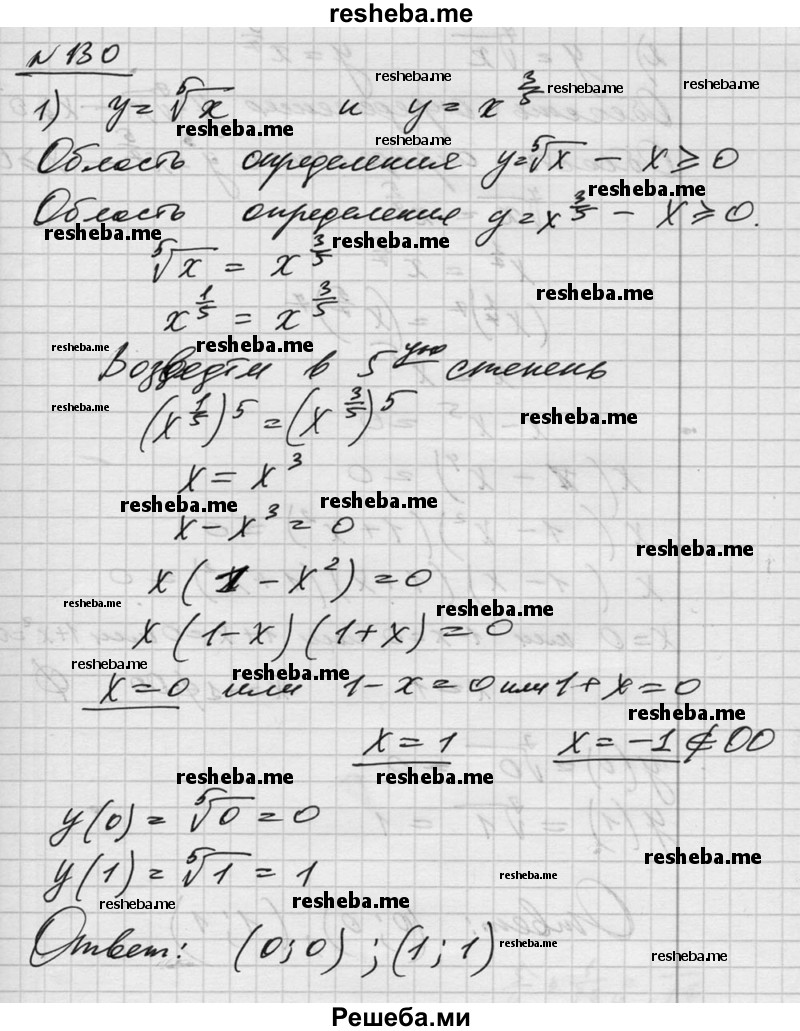 resheba.me
№ 130
resheba.me
resheba.me
resheba.me
1) y = ⁵√x и y = x^(3/5)
resheba.me
resheba.me
Область определения y = ⁵√x – x ≥ 0
resheba.me
Область определения y = x^(3/5) – x ≥ 0.
resheba.me
resheba.me
⁵√x = x^(3/5)
resheba.me
x^(1/5) = x^(3/5)
resheba.me
resheba.me
Возведём в 5 ую степень
resheba.me
resheba.me
(x^(1/5))^5 = (x^(3/5))^5
x = x³
resheba.me
resheba.me
x – x³ = 0
resheba.me
x (1 – x²) = 0
resheba.me
resheba.me
x (1 – x) (1 + x) = 0
resheba.me
resheba.me
x = 0 или 1 – x = 0 или 1 + x = 0
resheba.me
x = 1 x = –1 ∉ ОО
resheba.me
resheba.me
y(0) = ⁵√0 = 0
resheba.me
y(1) = ⁵√1 = 1
resheba.me
resheba.me
resheba.me
Ответ: (0; 0) ; (1; 1)
resheba.me
resheba.me
Решеба.ми